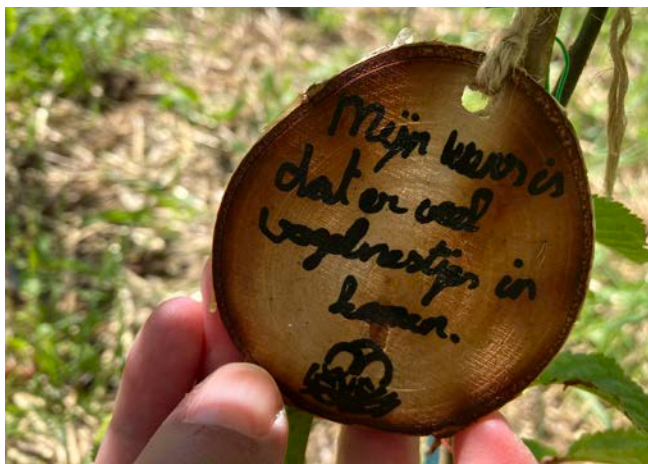 Mijn wens is
dat er veel
vogelnestjes in
komen.